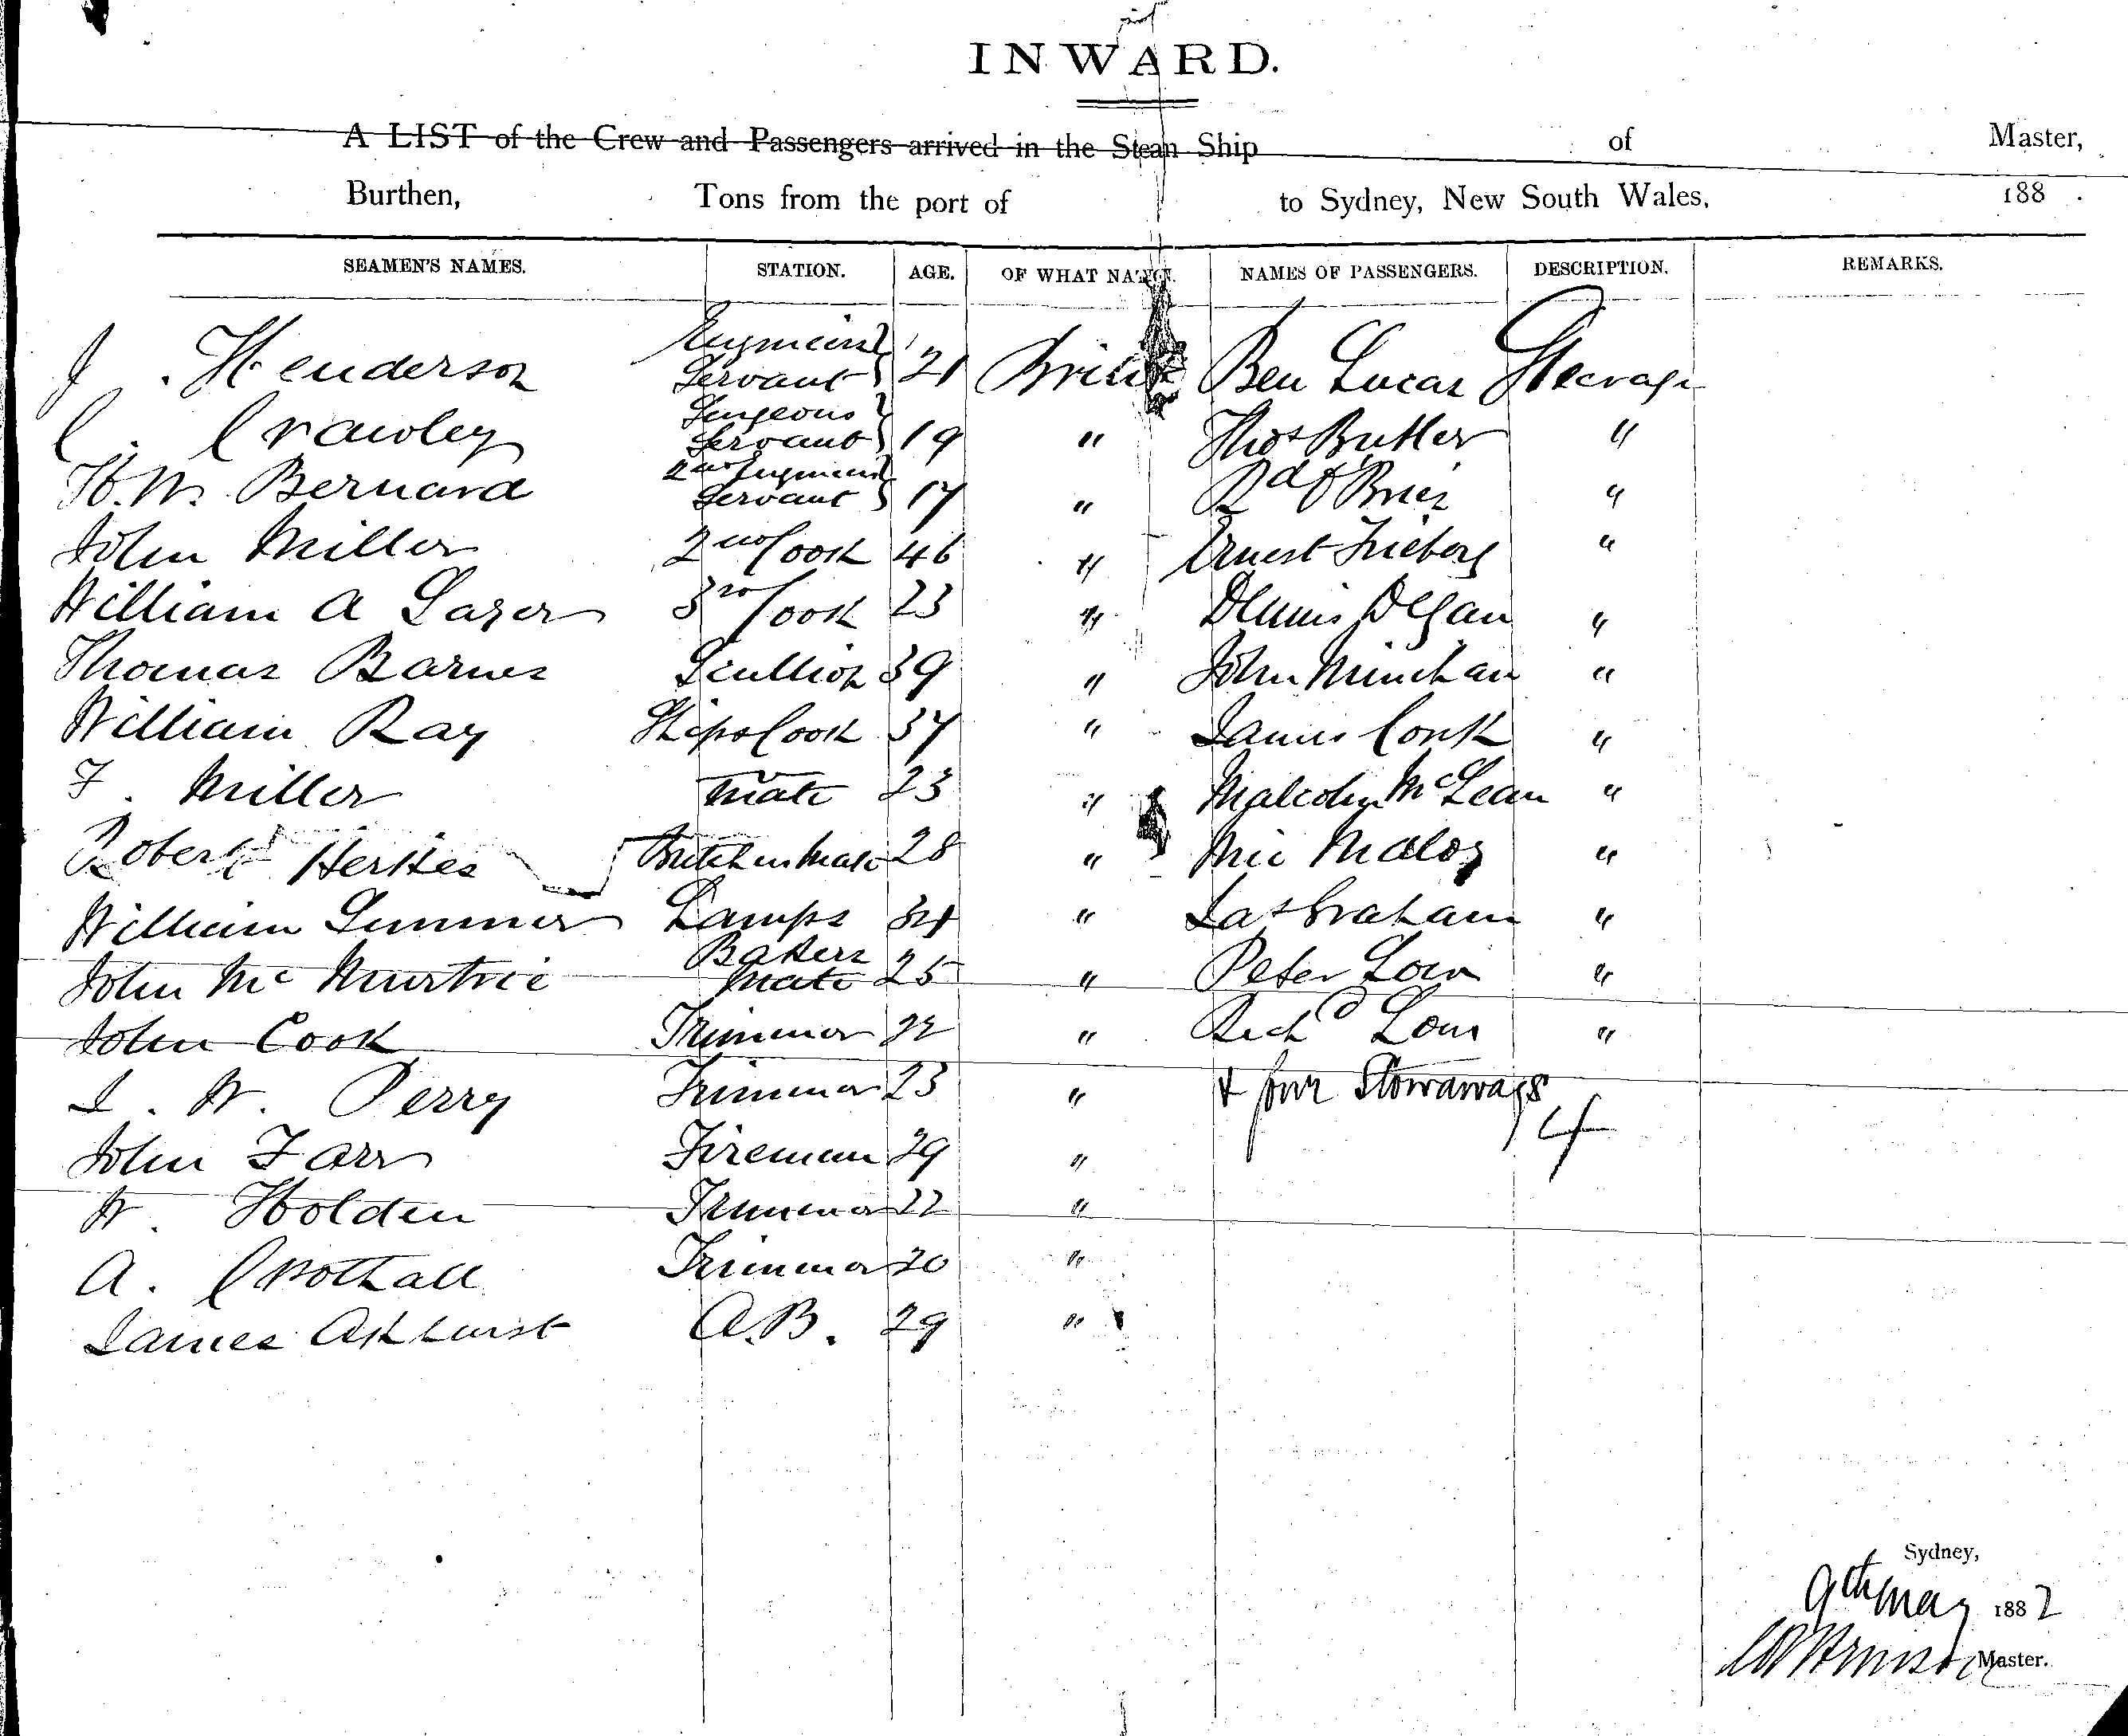 INWARD.
A LIST of the Crew and Passengers arrived in the Steam Ship of Master,
Burthen, Tons from the port of to Sydney, New South Wales, 188 .
SEAMEN'S NAMES. STATION. AGE. OF WHAT NATION. NAMES OF PASSENGERS. DESCRIPTION. REMARKS.
J. Henderson Servant } 21 British Ben Lucas Steerage
C. Crawley Surgeons Servant } 19 " Thos Butler "
H. W. Bernard 2nd Servant } 17 " Rd O'Brien "
John Miller 2nd Cook 46 " Ernest Frieberg "
William A Lazer 3rd Cook 23 " Dennis Degan "
Thomas Barnes Scullion 39 " John Minchan "
William Ray Ships Cook 37 " James Conk "
F. Miller " mate 23 " Malcolm McLean "
Robert Herkes Butchers Mate 28 " Mic Maloy "
William Summer Lamps 34 " Jas Graham "
John McMurtrie Bakers Mate 25 " Peter Low "
John Cook Trimmer 22 " Richd Low "
J. W. Perry Trimmer 23 " & four Stowaways
4
John Farr Fireman 29 "
W. Holden Trimmer 22 "
A. Crothall Trimmer 20 "
James Akhurst A.B. 29 "
Sydney,
9th May 1882
Master.